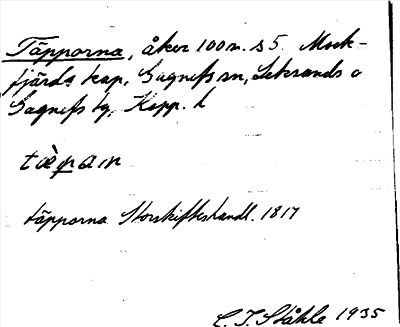 Täpporna, åker 100 m. s 5. Mock-
fjärds kap, Gagnefs sn, Leksands o
Gagnefs tg, Kopp. l
tæ̀pan
täpporna Storskifteshandl. 1817
C. I. Ståhle 1935